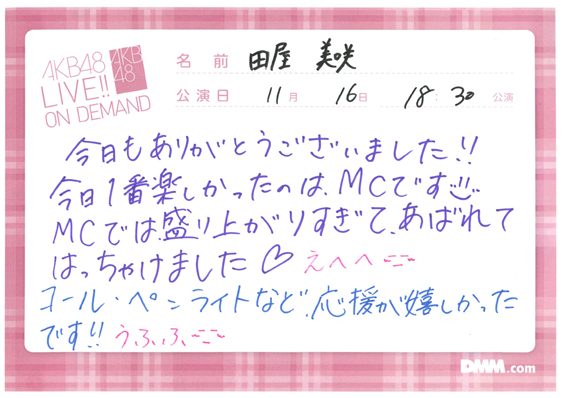 AKB48
LIVE!!
ON DEMAND
AKB
48
名前 田屋 美咲
公演日 11月 16日 18:30 公演
今日もありがとうございました!!
今日1番楽しかったのは、MCです
MCでは、盛り上がりすぎて、あばれて
はっちゃけました♡ えへへ
コール・ペンライトなど、応援が嬉しかった
です!! うふふ、
DMM.com